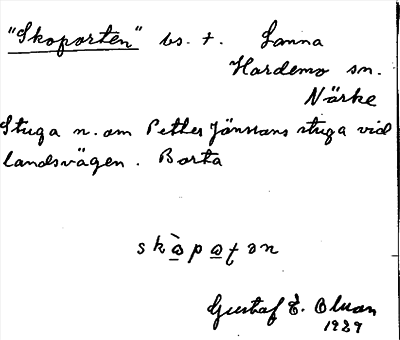 "Skoporten" bs. t. Lanna
Hardemo sn.
Närke
Stuga n. om Petter Jönssons stuga vid
landsvägen. Borta
Gustaf E. Olson
1929